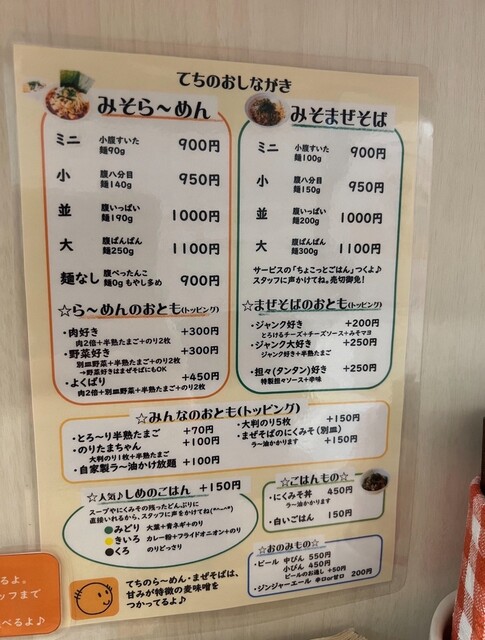 てちのおしながき
みそら～めん
ミニ 小腹すいた 麺90g 900円
小 腹八分目 麺140g 950円
並 腹いっぱい 麺190g 1000円
大 腹ぱんぱん 麺250g 1100円
麺なし 腹ぺったんこ 麺0g もやし多め 900円
☆ら～めんのおとも(トッピング)
・肉好き +300円
肉2倍+半熟たまご+のり2枚
・野菜好き +300円
別皿野菜+半熟たまご+のり2枚
→野菜好きはまぜそばにもOK
・よくばり +450円
肉2倍+別皿野菜+半熟たまご+のり2枚
みそまぜそば
ミニ 小腹すいた 麺100g 900円
小 腹八分目 麺150g 950円
並 腹いっぱい 麺200g 1000円
大 腹ぱんぱん 麺300g 1100円
サービスの「ちょこっとごはん」つくよ♪
スタッフに声かけてね。売切御免!
☆まぜそばのおとも(トッピング)
・ジャンク好き +200円
とろけるチーズ+チーズソース+みそマヨ
・ジャンク大好き +250円
ジャンク好き+半熟たまご
・担々(タンタン)好き +250円
特製担々ソース+辛味
☆みんなのおとも(トッピング)
・とろ～り半熟たまご +70円
・のりたまちゃん +100円
大判のり1枚+半熟たまご
・自家製ラー油かけ放題 +100円
・大判のり5枚 +150円
・まぜそばのにくみそ(別皿) +150円
ラー油かかります
☆人気♪しめのごはん +150円
スープやにくみその残ったどんぶりに
直接いれるから、スタッフに声をかけてね(*^-^*)
●みどり 大葉+青ネギ+のり
●きいろ カレー粉+フライドオニオン+のり
●くろ のりどっさり
☆ごはんもの☆
・にくみそ丼 450円
ラー油かかります
・白いごはん 150円
☆おのみもの☆
・ビール 中びん 550円
小びん 450円
ビールのお通し +50円
・ジンジャーエール 辛口or甘口 200円
てちのら～めん・まぜそばは、
甘みが特徴の麦味噌を
つかってるよ♪
るよ。
ッフまで
べるよ♪